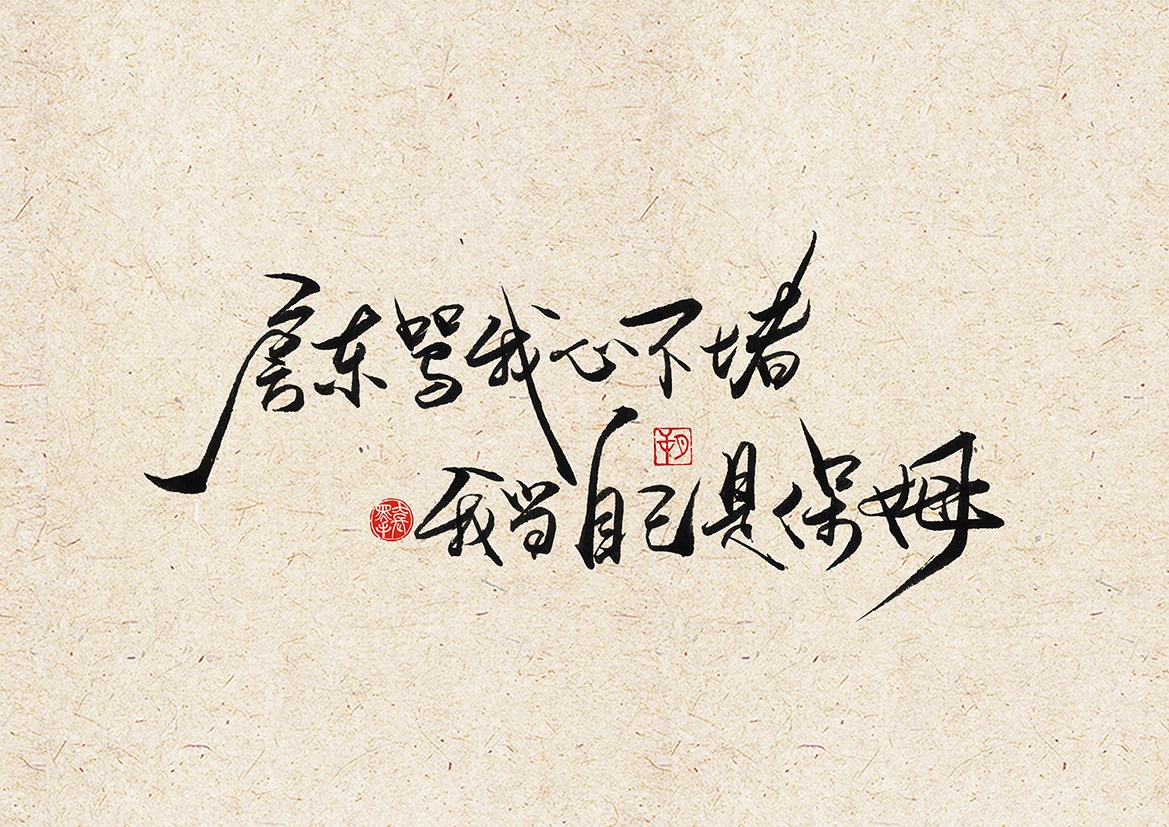 房东骂我心不堵
我当自己是保姆